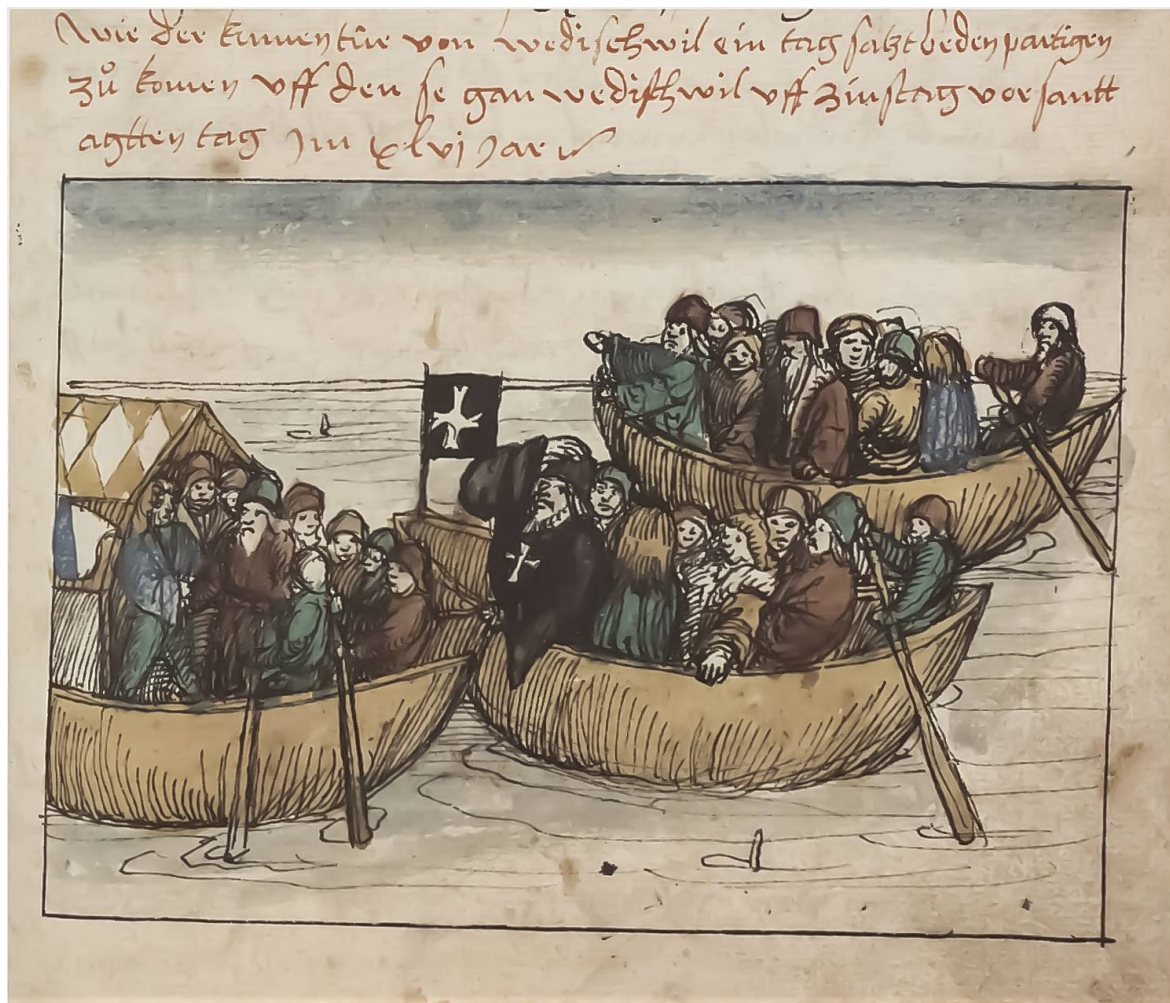 wie der kumentür von wedischwil ein tag satzt beden partigen
zů komen uff den se gan wedischwil uff zinstag vor santt
agtten tag Im xlvj Jar